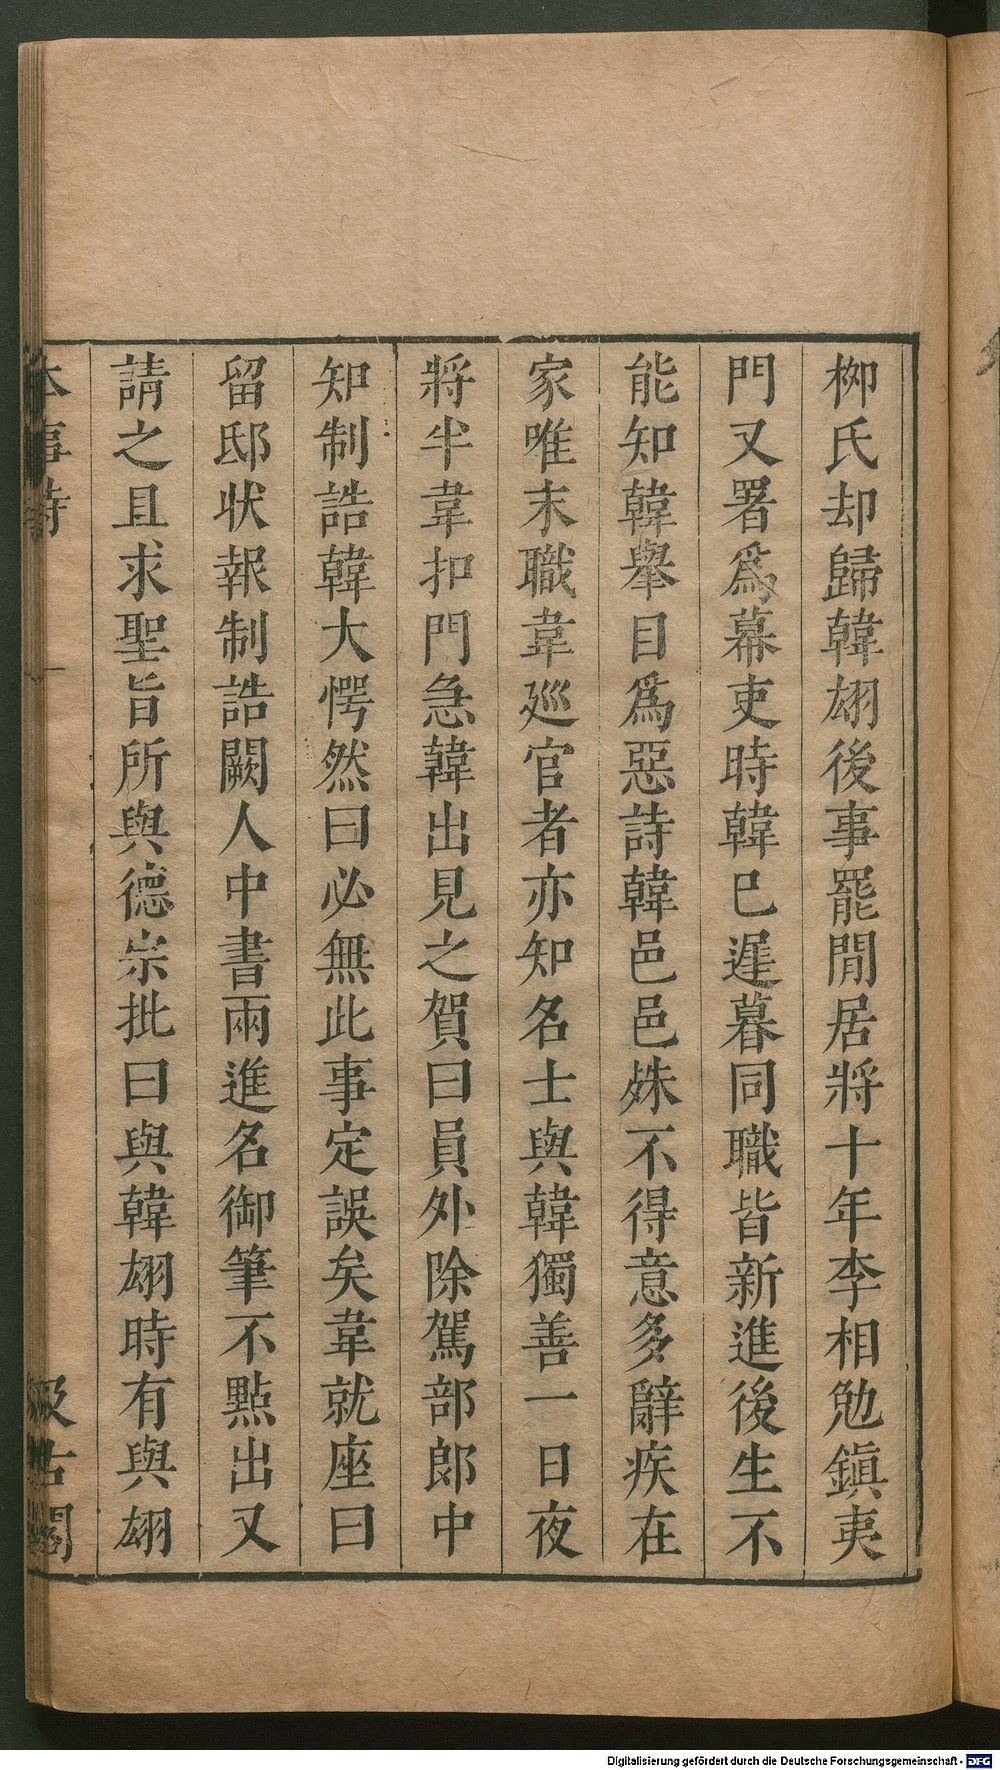 桺氏却歸韓翃後事罷閒居將十年李相勉鎮夷
門又署爲幕吏時韓已遲暮同職皆新進後生不
能知韓舉目爲惡詩韓邑邑殊不得意多辭疾在
家唯末職韋廵官者亦知名士與韓獨善一日夜
將半韋扣門急韓出見之賀曰員外除駕部郎中
知制誥韓大愕然曰必無此事定誤矣韋就座曰
留邸状報制誥闕人中書兩進名御筆不點出又
請之且求聖旨所與德宗批曰與韓翃時有與翃
本事詩 一 汲古閣
Digitalisierung gefördert durch die Deutsche Forschungsgemeinschaft - DFG